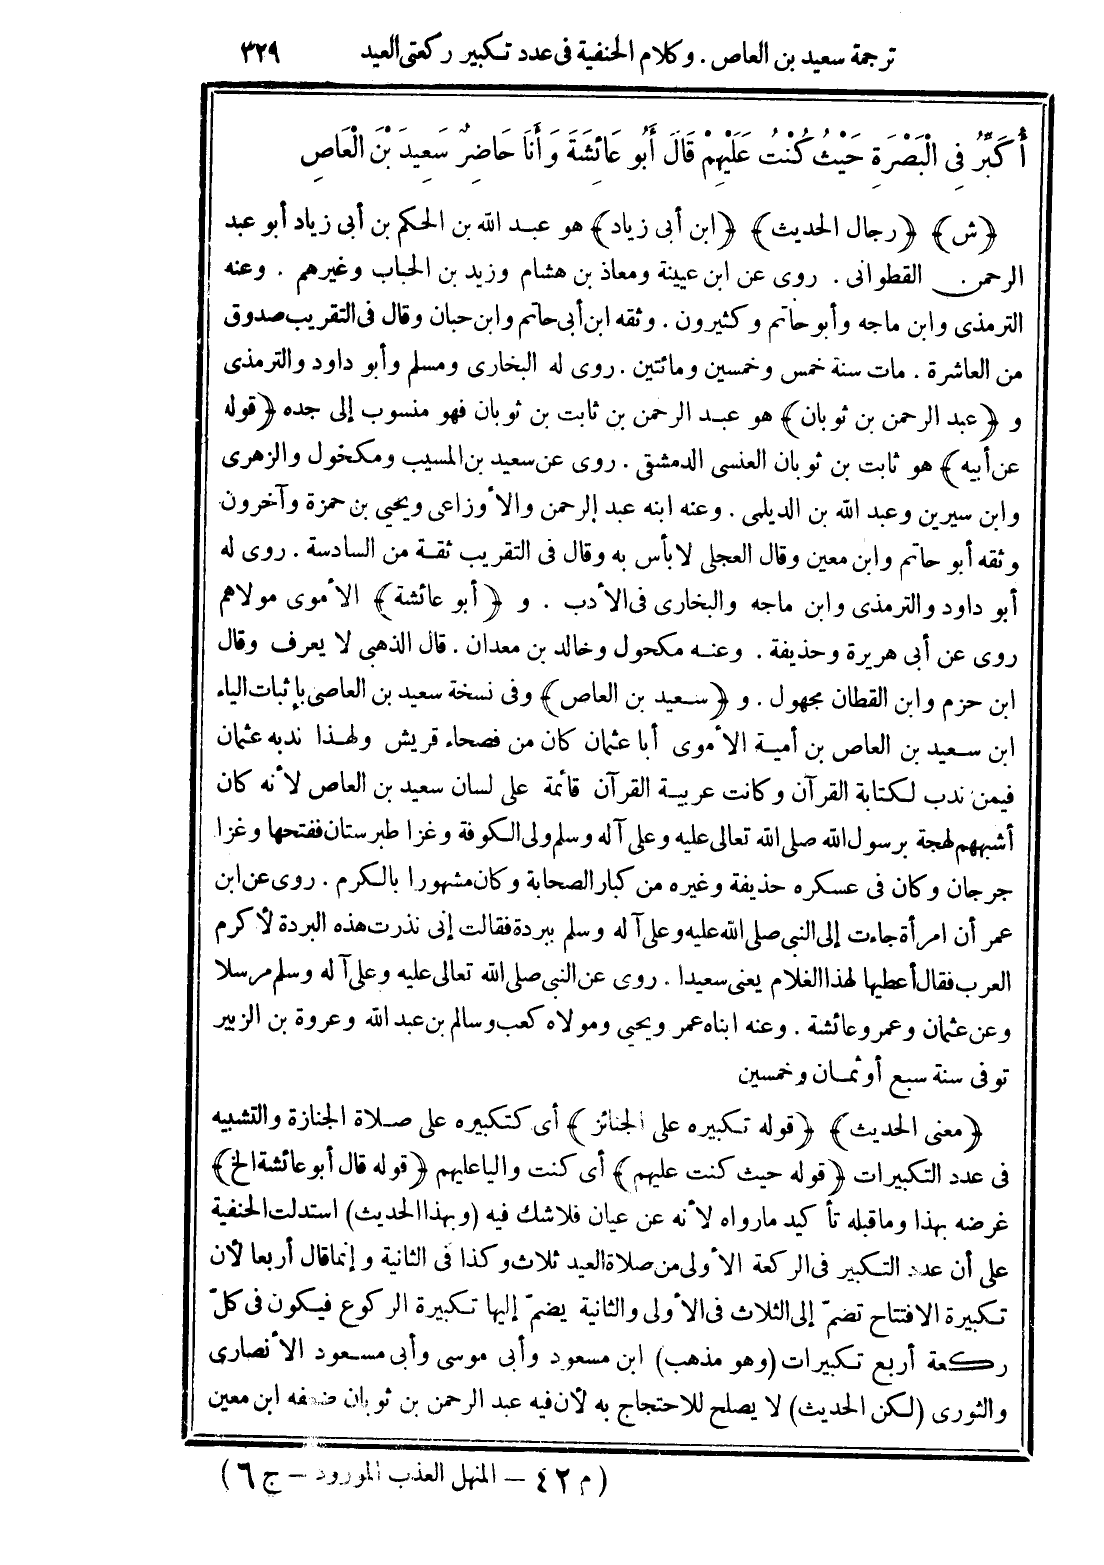 ترجمة سعيد بن العاص . وكلام الحنفية فى عدد تكبير ركعتى العيد ٣٢٩
أُكَبِّرُ فِى الْبَصْرَةِ حَيْثُ كُنْتُ عَلَيْهِمْ قَالَ أَبُو عَائِشَةَ وَأَنَا حَاضِرٌ سَعِيدَ بْنَ الْعَاصِ
﴿ش﴾ ﴿رجال الحديث﴾ ﴿ابن أبى زياد﴾ هو عبد الله بن الحكم بن أبى زياد أبو عبد
الرحمن القطوانى . روى عن ابن عيينة ومعاذ بن هشام وزيد بن الحباب وغيرهم . وعنه
الترمذى وابن ماجه وأبو حاتم وكثيرون . وثقه ابن أبى حاتم وابن حبان وقال فى التقريب صدوق
من العاشرة . مات سنة خمس وخمسين ومائتين . روى له البخارى ومسلم وأبو داود والترمذى
و ﴿عبد الرحمن بن ثوبان﴾ هو عبد الرحمن بن ثابت بن ثوبان فهو منسوب إلى جده ﴿قوله
عن أبيه﴾ هو ثابت بن ثوبان العنسى الدمشقى . روى عن سعيد بن المسيب ومكحول والزهرى
وابن سيرين وعبد الله بن الديلمى . وعنه ابنه عبد الرحمن والأوزاعى ويحيى بن حمزة وآخرون
وثقه أبو حاتم وابن معين وقال العجلى لابأس به وقال فى التقريب ثقة من السادسة . روى له
أبو داود والترمذى وابن ماجه والبخارى فى الأدب . و ﴿أبو عائشة﴾ الأموى مولاهم
روى عن أبى هريرة وحذيفة . وعنه مكحول وخالد بن معدان . قال الذهبى لا يعرف وقال
ابن حزم وابن القطان مجهول . و ﴿سعيد بن العاص﴾ وفى نسخة سعيد بن العاصى بإثبات الياء
ابن سعيد بن العاص بن أمية الأموى أبا عثمان كان من فصحاء قريش ولهذا ندبه عثمان
فيمن ندب لكتابة القرآن وكانت عربية القرآن قائمة على لسان سعيد بن العاص لأنه كان
أشبههم لهجة برسول الله صلى الله تعالى عليه وعلى آله وسلم ولى الكوفة وغزا طبرستان ففتحها وغزا
جرجان وكان فى عسكره حذيفة وغيره من كبار الصحابة وكان مشهورا بالكرم . روى عن ابن
عمر أن امرأة جاءت إلى النبى صلى الله عليه وعلى آله وسلم ببردة فقالت إنى نذرت هذه البردة لأكرم
العرب فقال أعطيها لهذا الغلام يعنى سعيدا . روى عن النبى صلى الله تعالى عليه وعلى آله وسلم مرسلا
وعن عثمان وعمر وعائشة . وعنه ابناه عمر ويحيى ومولاه كعب وسالم بن عبد الله وعروة بن الزبير
توفى سنة سبع أو ثمان وخمسين
﴿معنى الحديث﴾ ﴿قوله تكبيره على الجنائز﴾ أى كتكبيره على صلاة الجنازة والتشبيه
فى عدد التكبيرات ﴿قوله حيث كنت عليهم﴾ أى كنت واليا عليهم ﴿قوله قال أبو عائشة الخ﴾
غرضه بهذا وماقبله تأكيد مارواه لأنه عن عيان فلاشك فيه (وبهذا الحديث) استدلت الحنفية
على أن عدد التكبير فى الركعة الأولى من صلاة العيد ثلاث وكذا فى الثانية وإنما قال أربعا لأن
تكبيرة الافتتاح تضمّ إلى الثلاث فى الأولى والثانية يضمّ إليها تكبيرة الركوع فيكون فى كلّ
ركعة أربع تكبيرات (وهو مذهب) ابن مسعود وأبى موسى وأبى مسعود الأنصارى
والثورى (لكن الحديث) لا يصلح للاحتجاج به لأن فيه عبد الرحمن بن ثوبان ضعفه ابن معين
(م ٤٢ – المنهل العذب المورود – ج ٦)